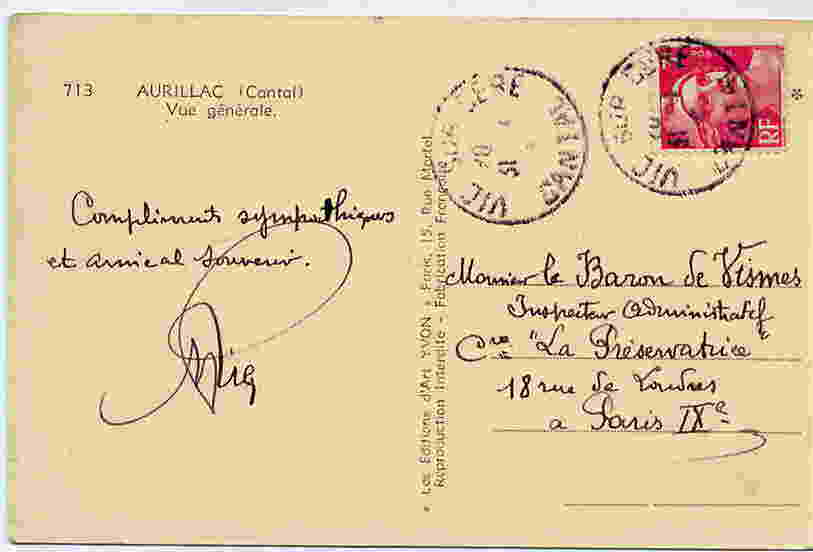 713 AURILLAC (Cantal)
Vue générale.
Compliments sympathiques
et amical souvenir.
VIC SUR CERE
CANTAL
VIC SUR CERE
CANTAL
RF
* Les Editions d'Art YVON * Paris, 15, Rue Martel
Reproduction Interdite - Fabrication Française
Monsieur le Baron de Vismes
Inspecteur Administratif
Cie "La Préservatrice"
18 rue de Londres
a Paris IXe